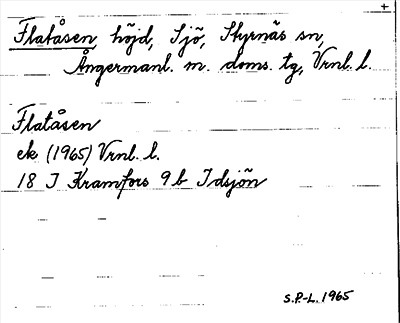 Flatåsen, höjd, Sjö, Styrnäs sn,
Ångermanl. m. doms. tg, Vrnl. l.
Flatåsen
ek. (1965) Vrnl. l.
18 I Kramfors 9 b Idsjön
S.P.-L. 1965